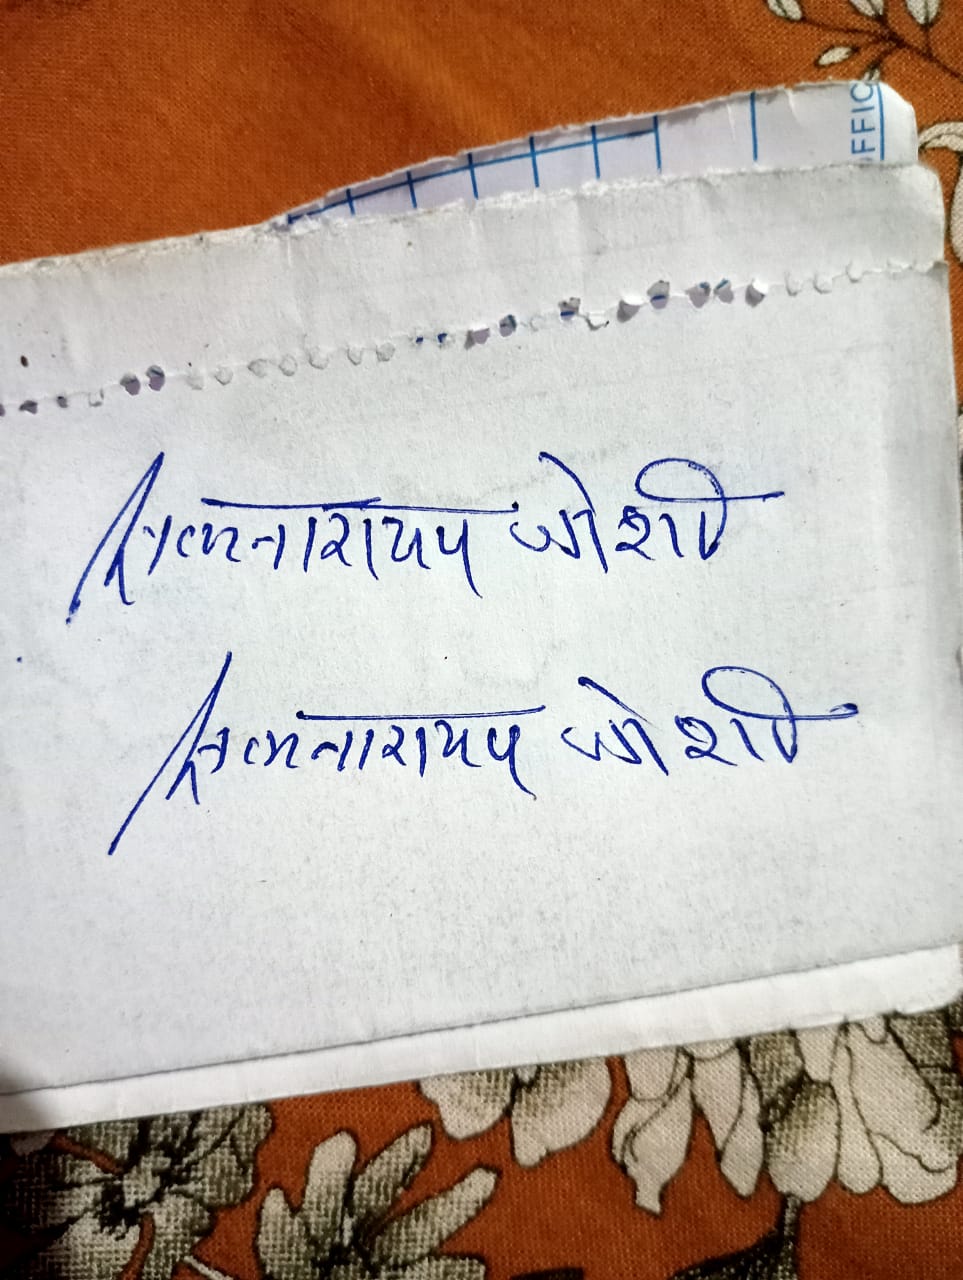 FFIC
सत्यनारायण जोशी
सत्यनारायण जोशी